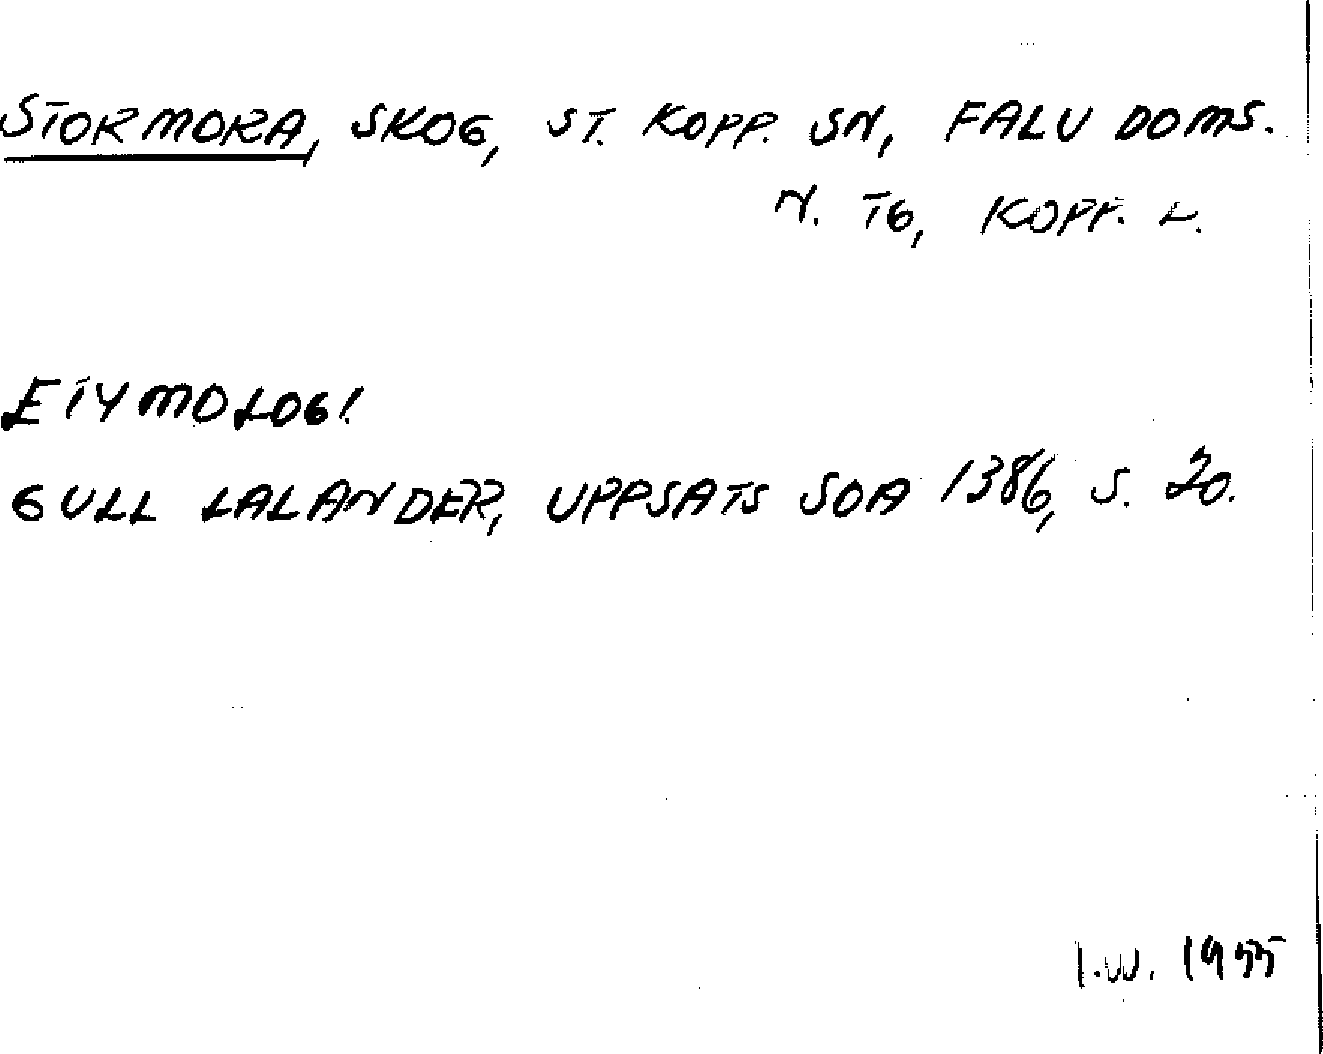 STORMORA, SKOG, ST. KOPP. SN, FALU DOMS.
N. TG, KOPP. L.
ETYMOLOGI
GULL LALANDER, UPPSATS SOA 1386, S. 20.
I.W. 1955